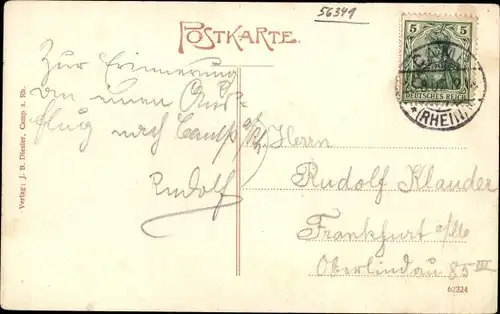 56349
POSTKARTE.
5
DEUTSCHES REICH
CAMP
*(RHEIN)
Zur Erinnerung
an einen Aus-
flug nach Camp a/Rh.
Rudolf
Herrn
Rudolf Klauder
Frankfurt a/M
Oberlindau 85 III
Verlag: J. B. Diesler, Camp a. Rh.
62324